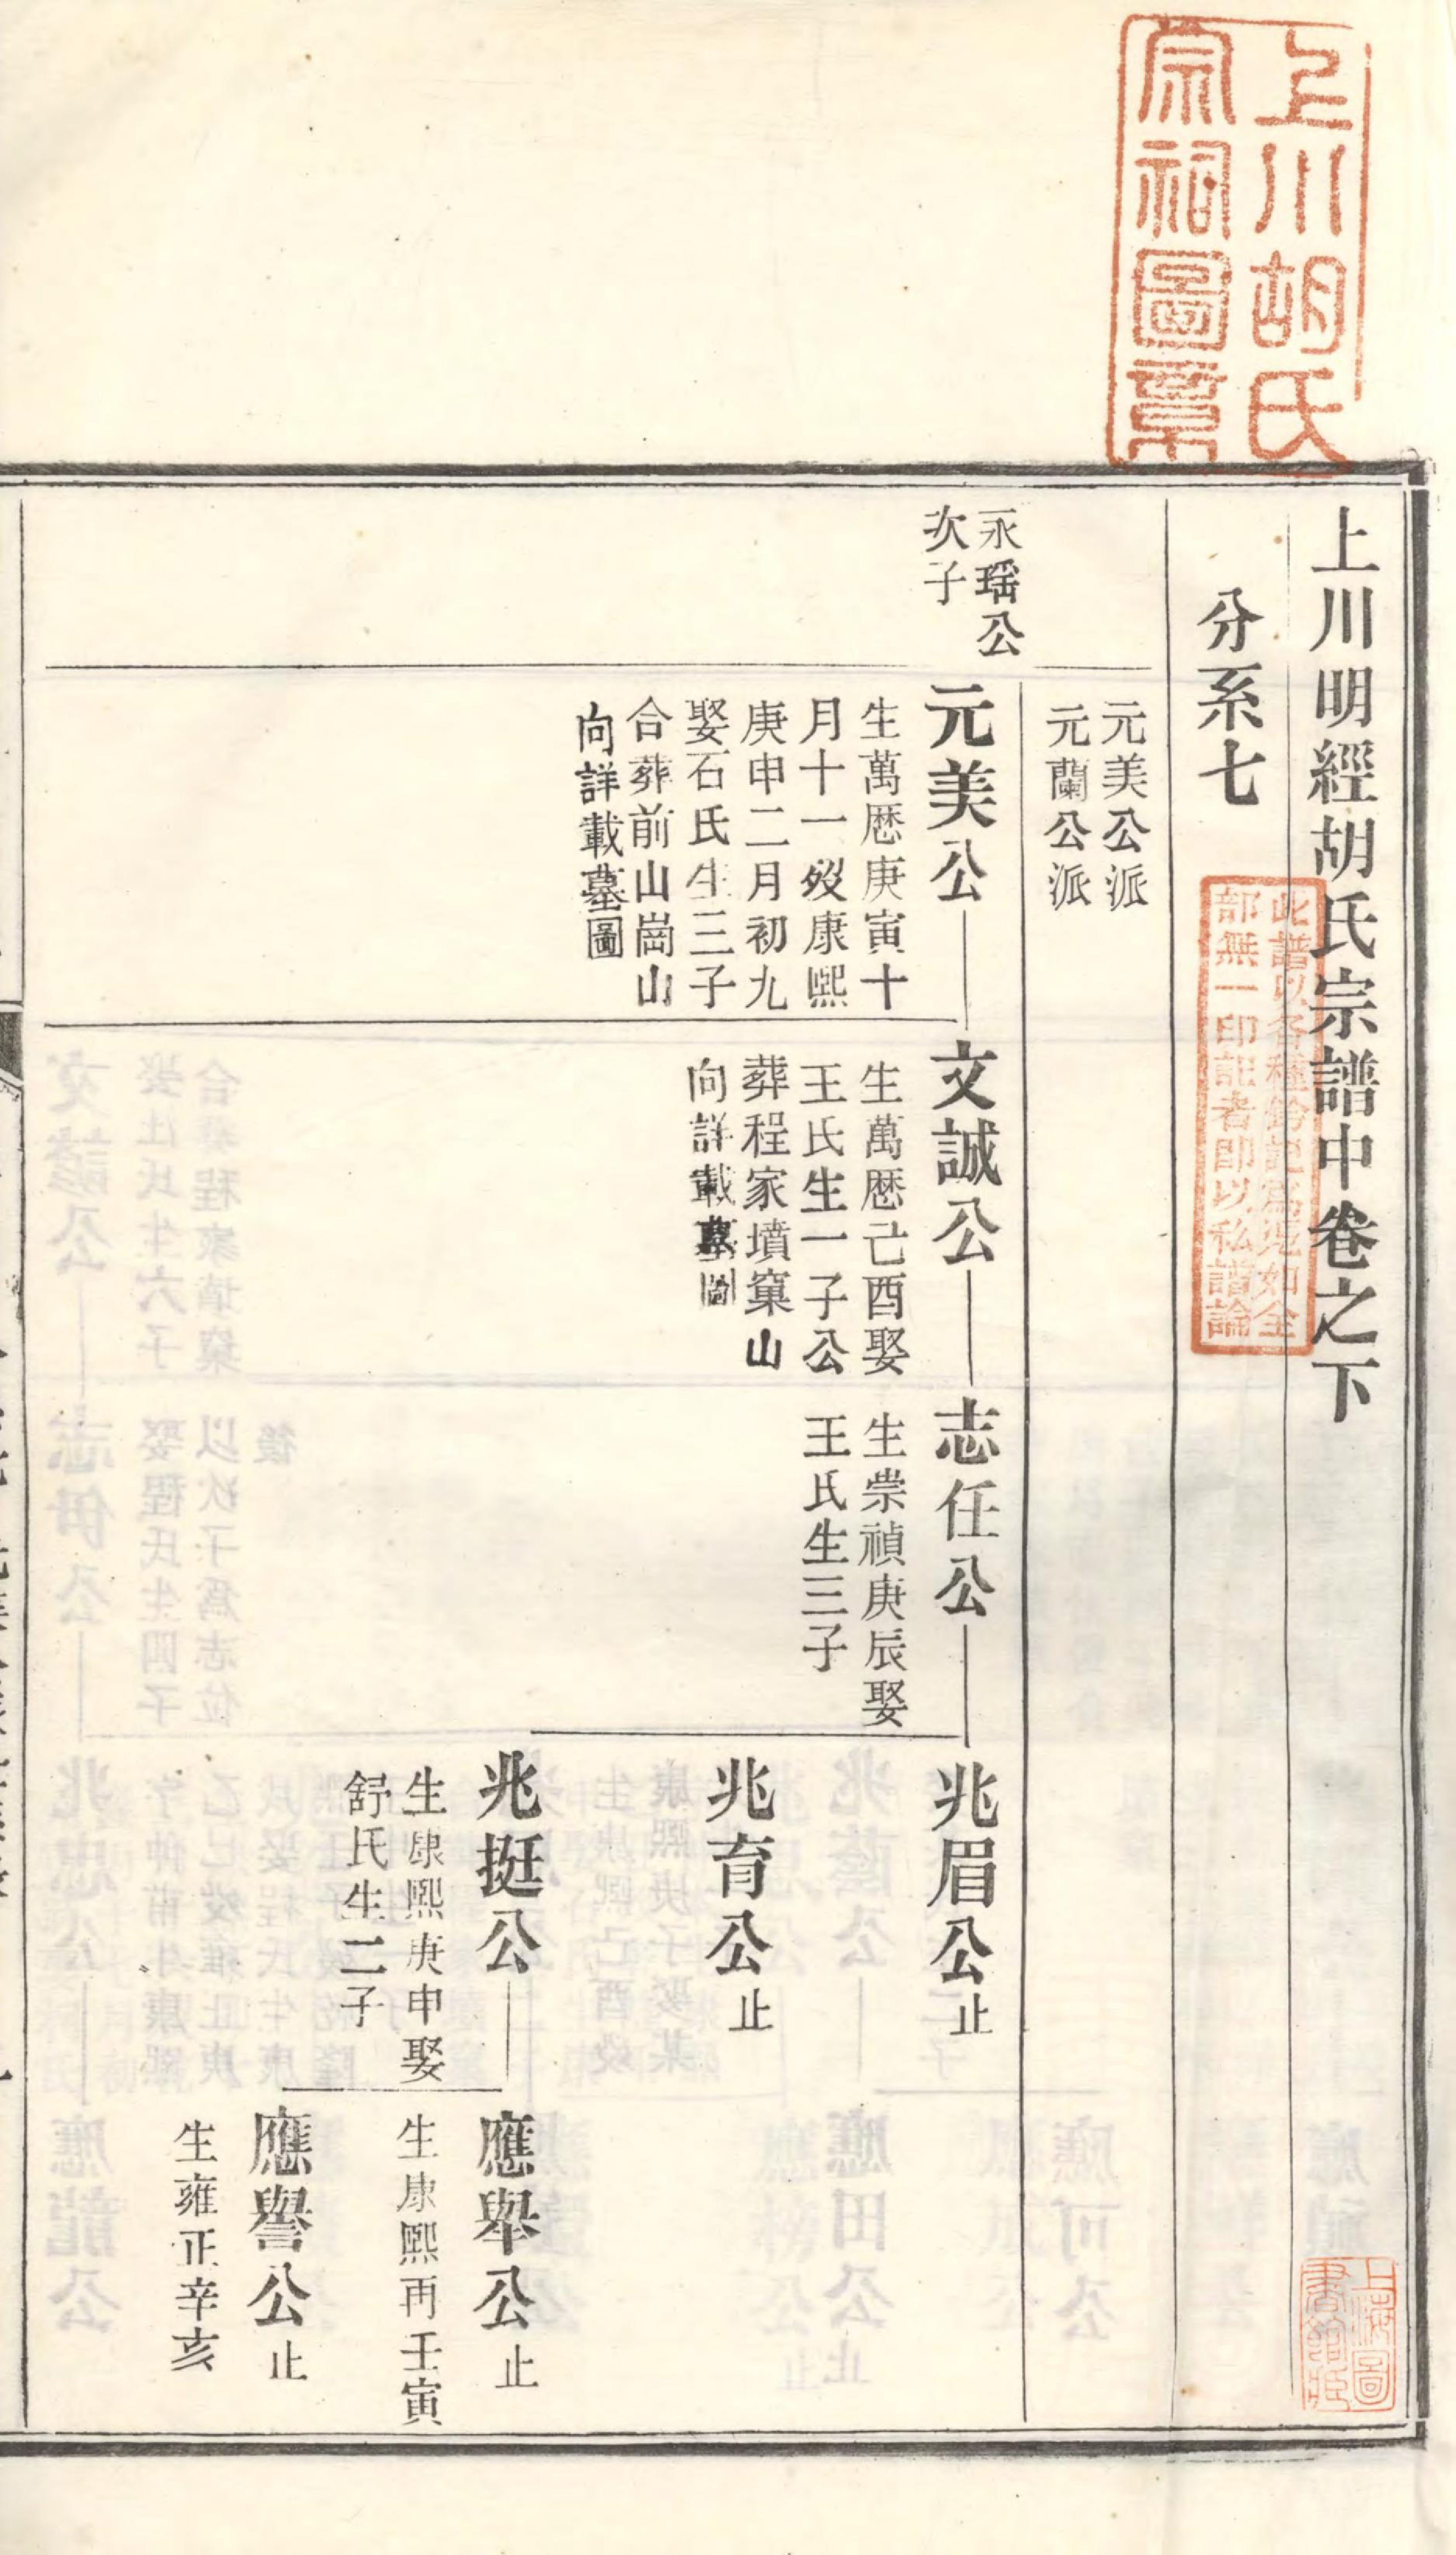 上川胡氏
宗祠圖章
上川明經胡氏宗譜中卷之下
此譜以各種鈐記爲憑如全
部無一印記者卽以私譜論
上海圖
書館藏
分系七
元美公派
元蘭公派
永瑶公
次子
元美公
生萬厯庚寅十
月十一歿康熙
庚申二月初九
娶石氏生三子
合葬前山崗山
向詳載墓圖
文誠公
生萬厯己酉娶
王氏生一子公
葬程家墳窠山
向詳載墓圖
志任公
生崇禎庚辰娶
王氏生三子
兆眉公止
兆育公止
兆挺公
生康熙庚申娶
舒氏生二子
應舉公止
生康熙再壬寅
應譽公止
生雍正辛亥